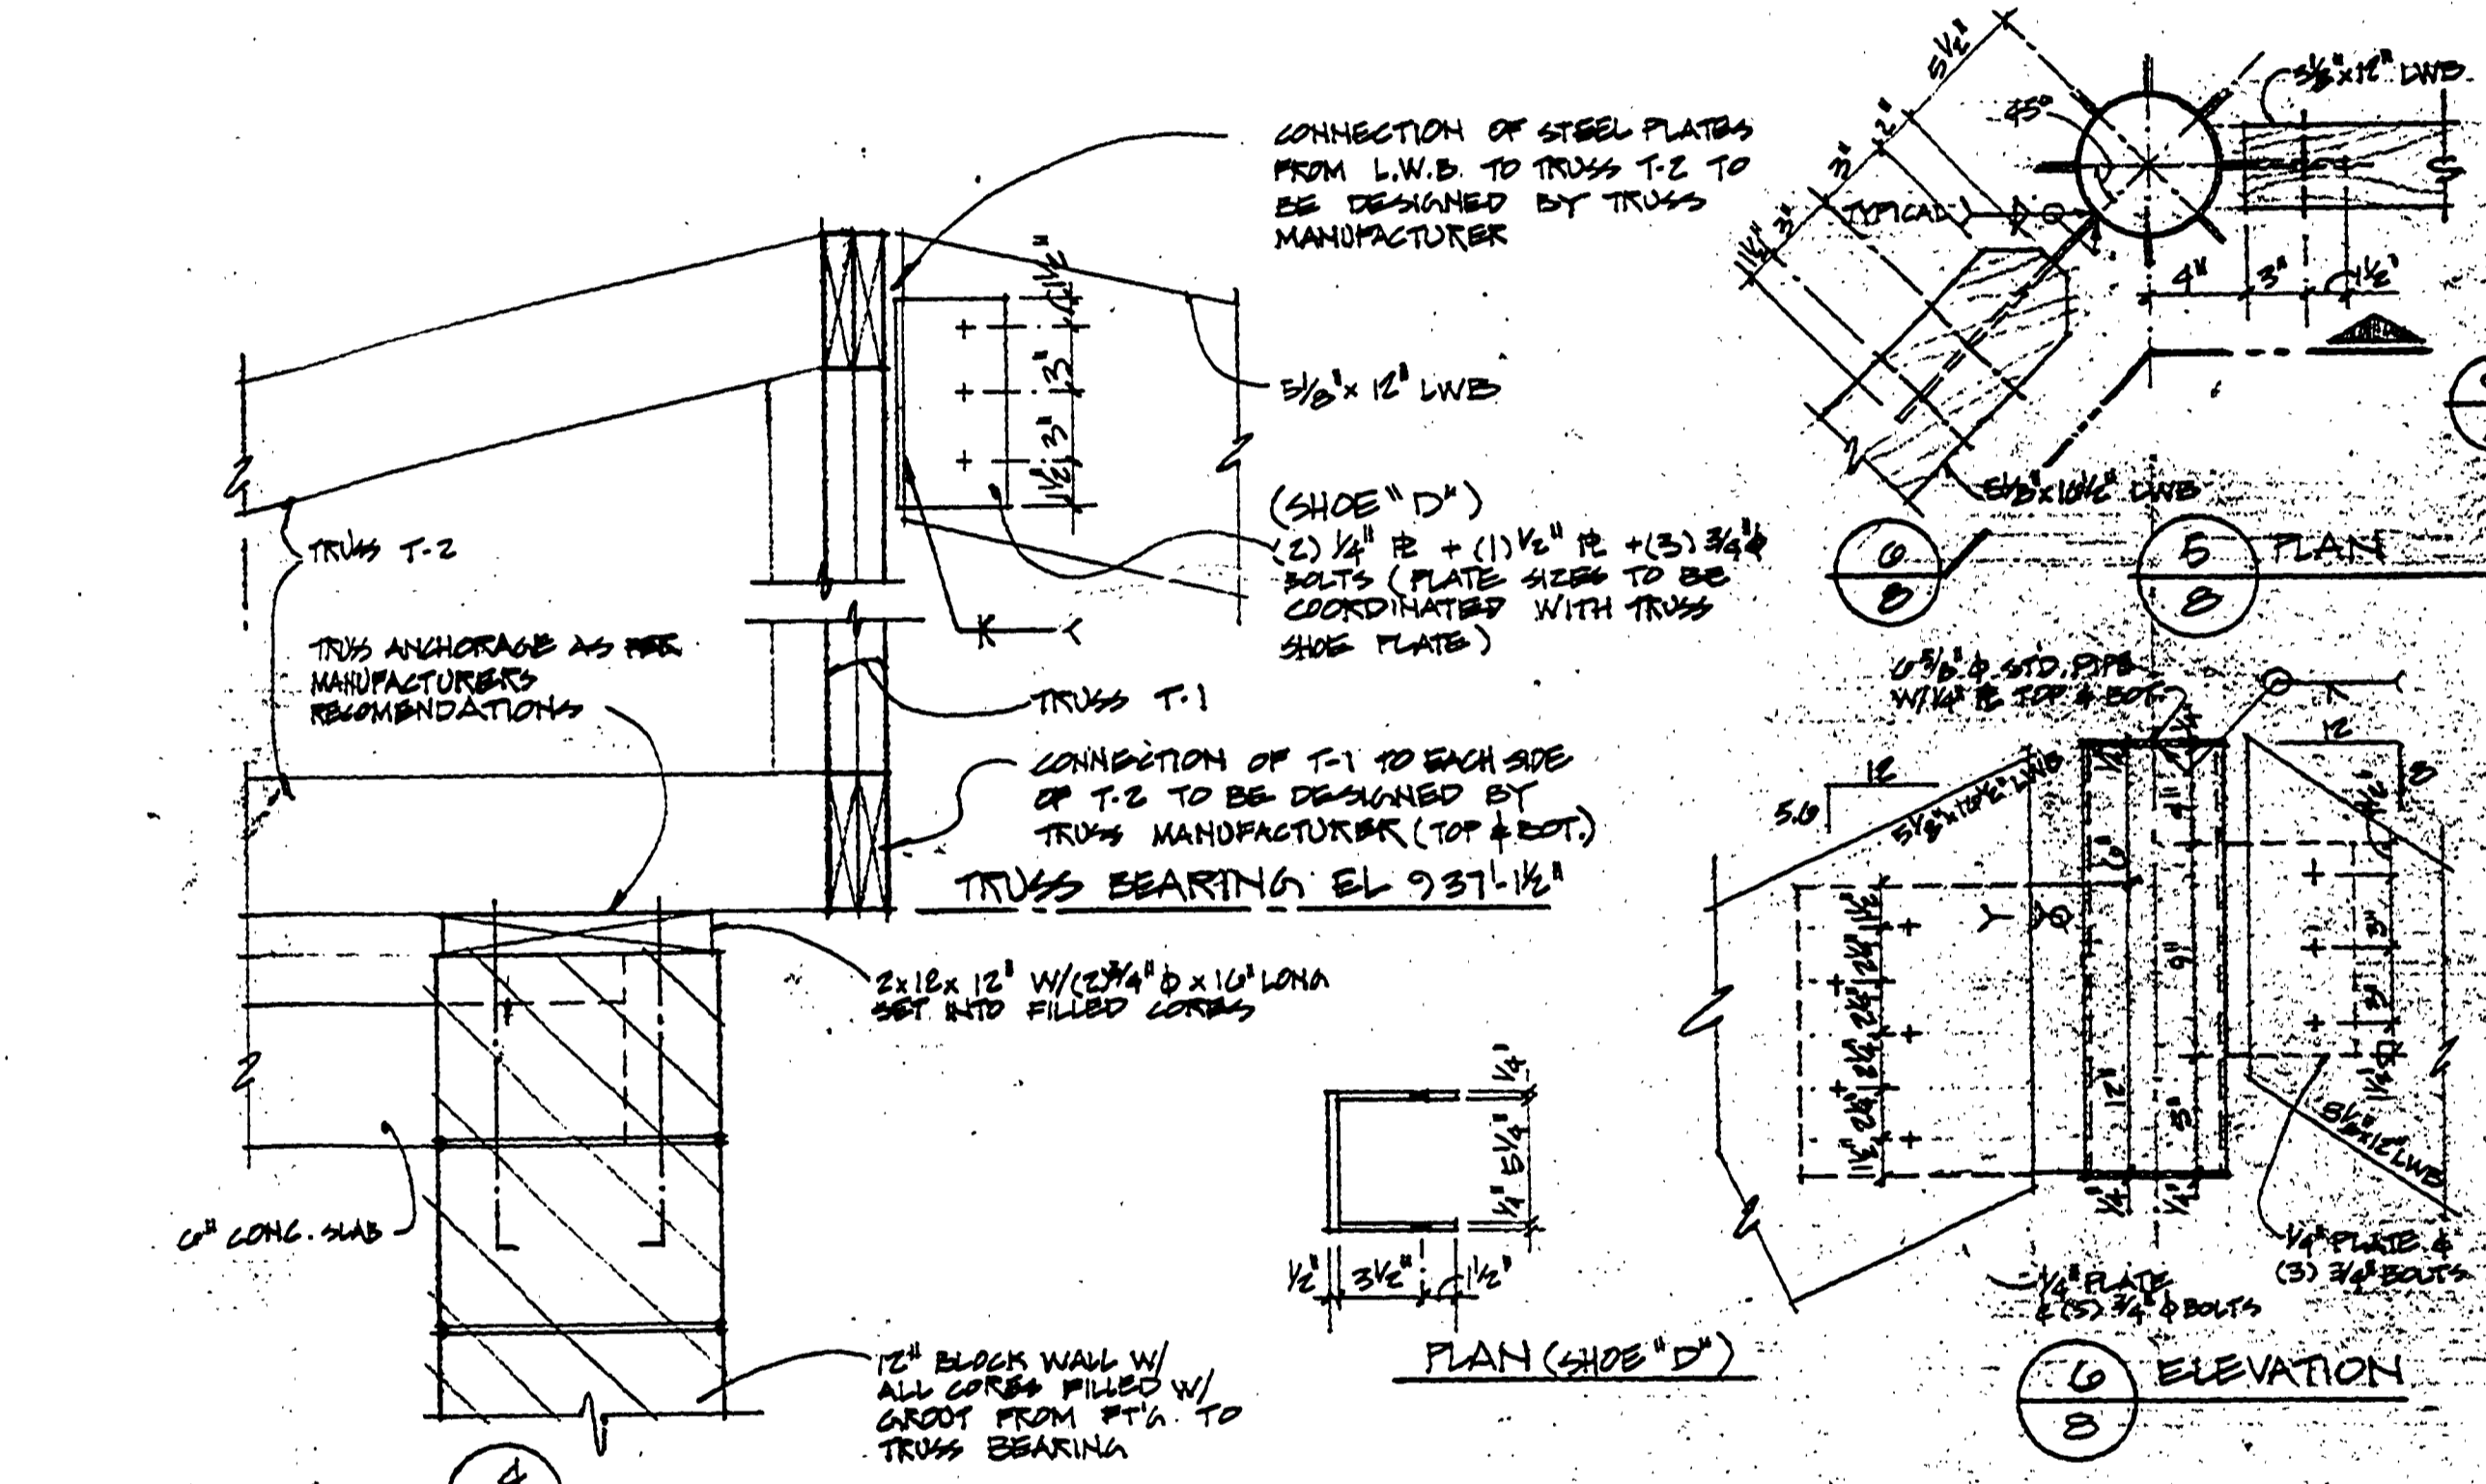 CONNECTION OF STEEL PLATES
FROM L.W.B. TO TRUSS T-2 TO
BE DESIGNED BY TRUSS
MANUFACTURER
1½"
3"
3"
1½"
5⅛" x 12" LWB
(SHOE "D")
(2) ¼" ℄ + (1) ½" ℄ + (3) ¾"φ
BOLTS (PLATE SIZES TO BE
COORDINATED WITH TRUSS
SHOE PLATE)
TRUSS T-2
TRUSS ANCHORAGE AS PER
MANUFACTURERS
RECOMENDATIONS
TRUSS T-1
CONNECTION OF T-1 TO EACH SIDE
OF T-2 TO BE DESIGNED BY
TRUSS MANUFACTURER (TOP & BOT.)
TRUSS BEARING EL 937'-1½"
2x12x12" W/(2)¾"φ x 16" LONG
SET INTO FILLED CORES
6" CONC. SLAB
12" BLOCK WALL W/
ALL CORES FILLED W/
GROUT FROM FT'G. TO
TRUSS BEARING
4
¼"
5¼"
¼"
½"
3½"
1½"
PLAN (SHOE "D")
5½"
2"
3"
3"
1½"
45°
TYPICAL
5⅛"x12" LWB
4"
3"
1½"
5⅛"x16½" LWB
6
8
5
8
PLAN
6⅝"φ STD. PIPE
W/¼" ℄ TOP & BOT.
12
5.6
5⅛"x16½" LWB
12
8
¼"
4"
6"
9"
12"
5"
¼"
¼"
1½"
2½"
2½"
2½"
2½"
1½"
3"
3"
1½"
5⅛"x12" LWB
¼" PLATE &
(3) ¾" BOLTS
¼" PLATE
& (5) ¾"φ BOLTS
6
8
ELEVATION